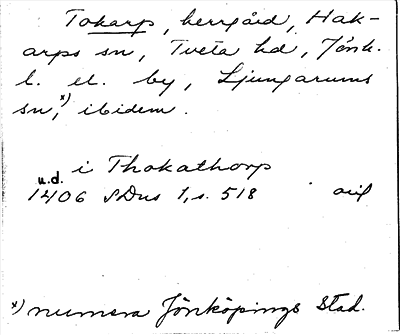 Tokarp, herrgård, Hak-
arps sn, Tveta hd, Jönk.
l. el. by, Ljungarums
sn,x) ibidem.
i Thokathorp
u.d.
1406 SDns 1, s. 518
x) numera Jönköpings stad.